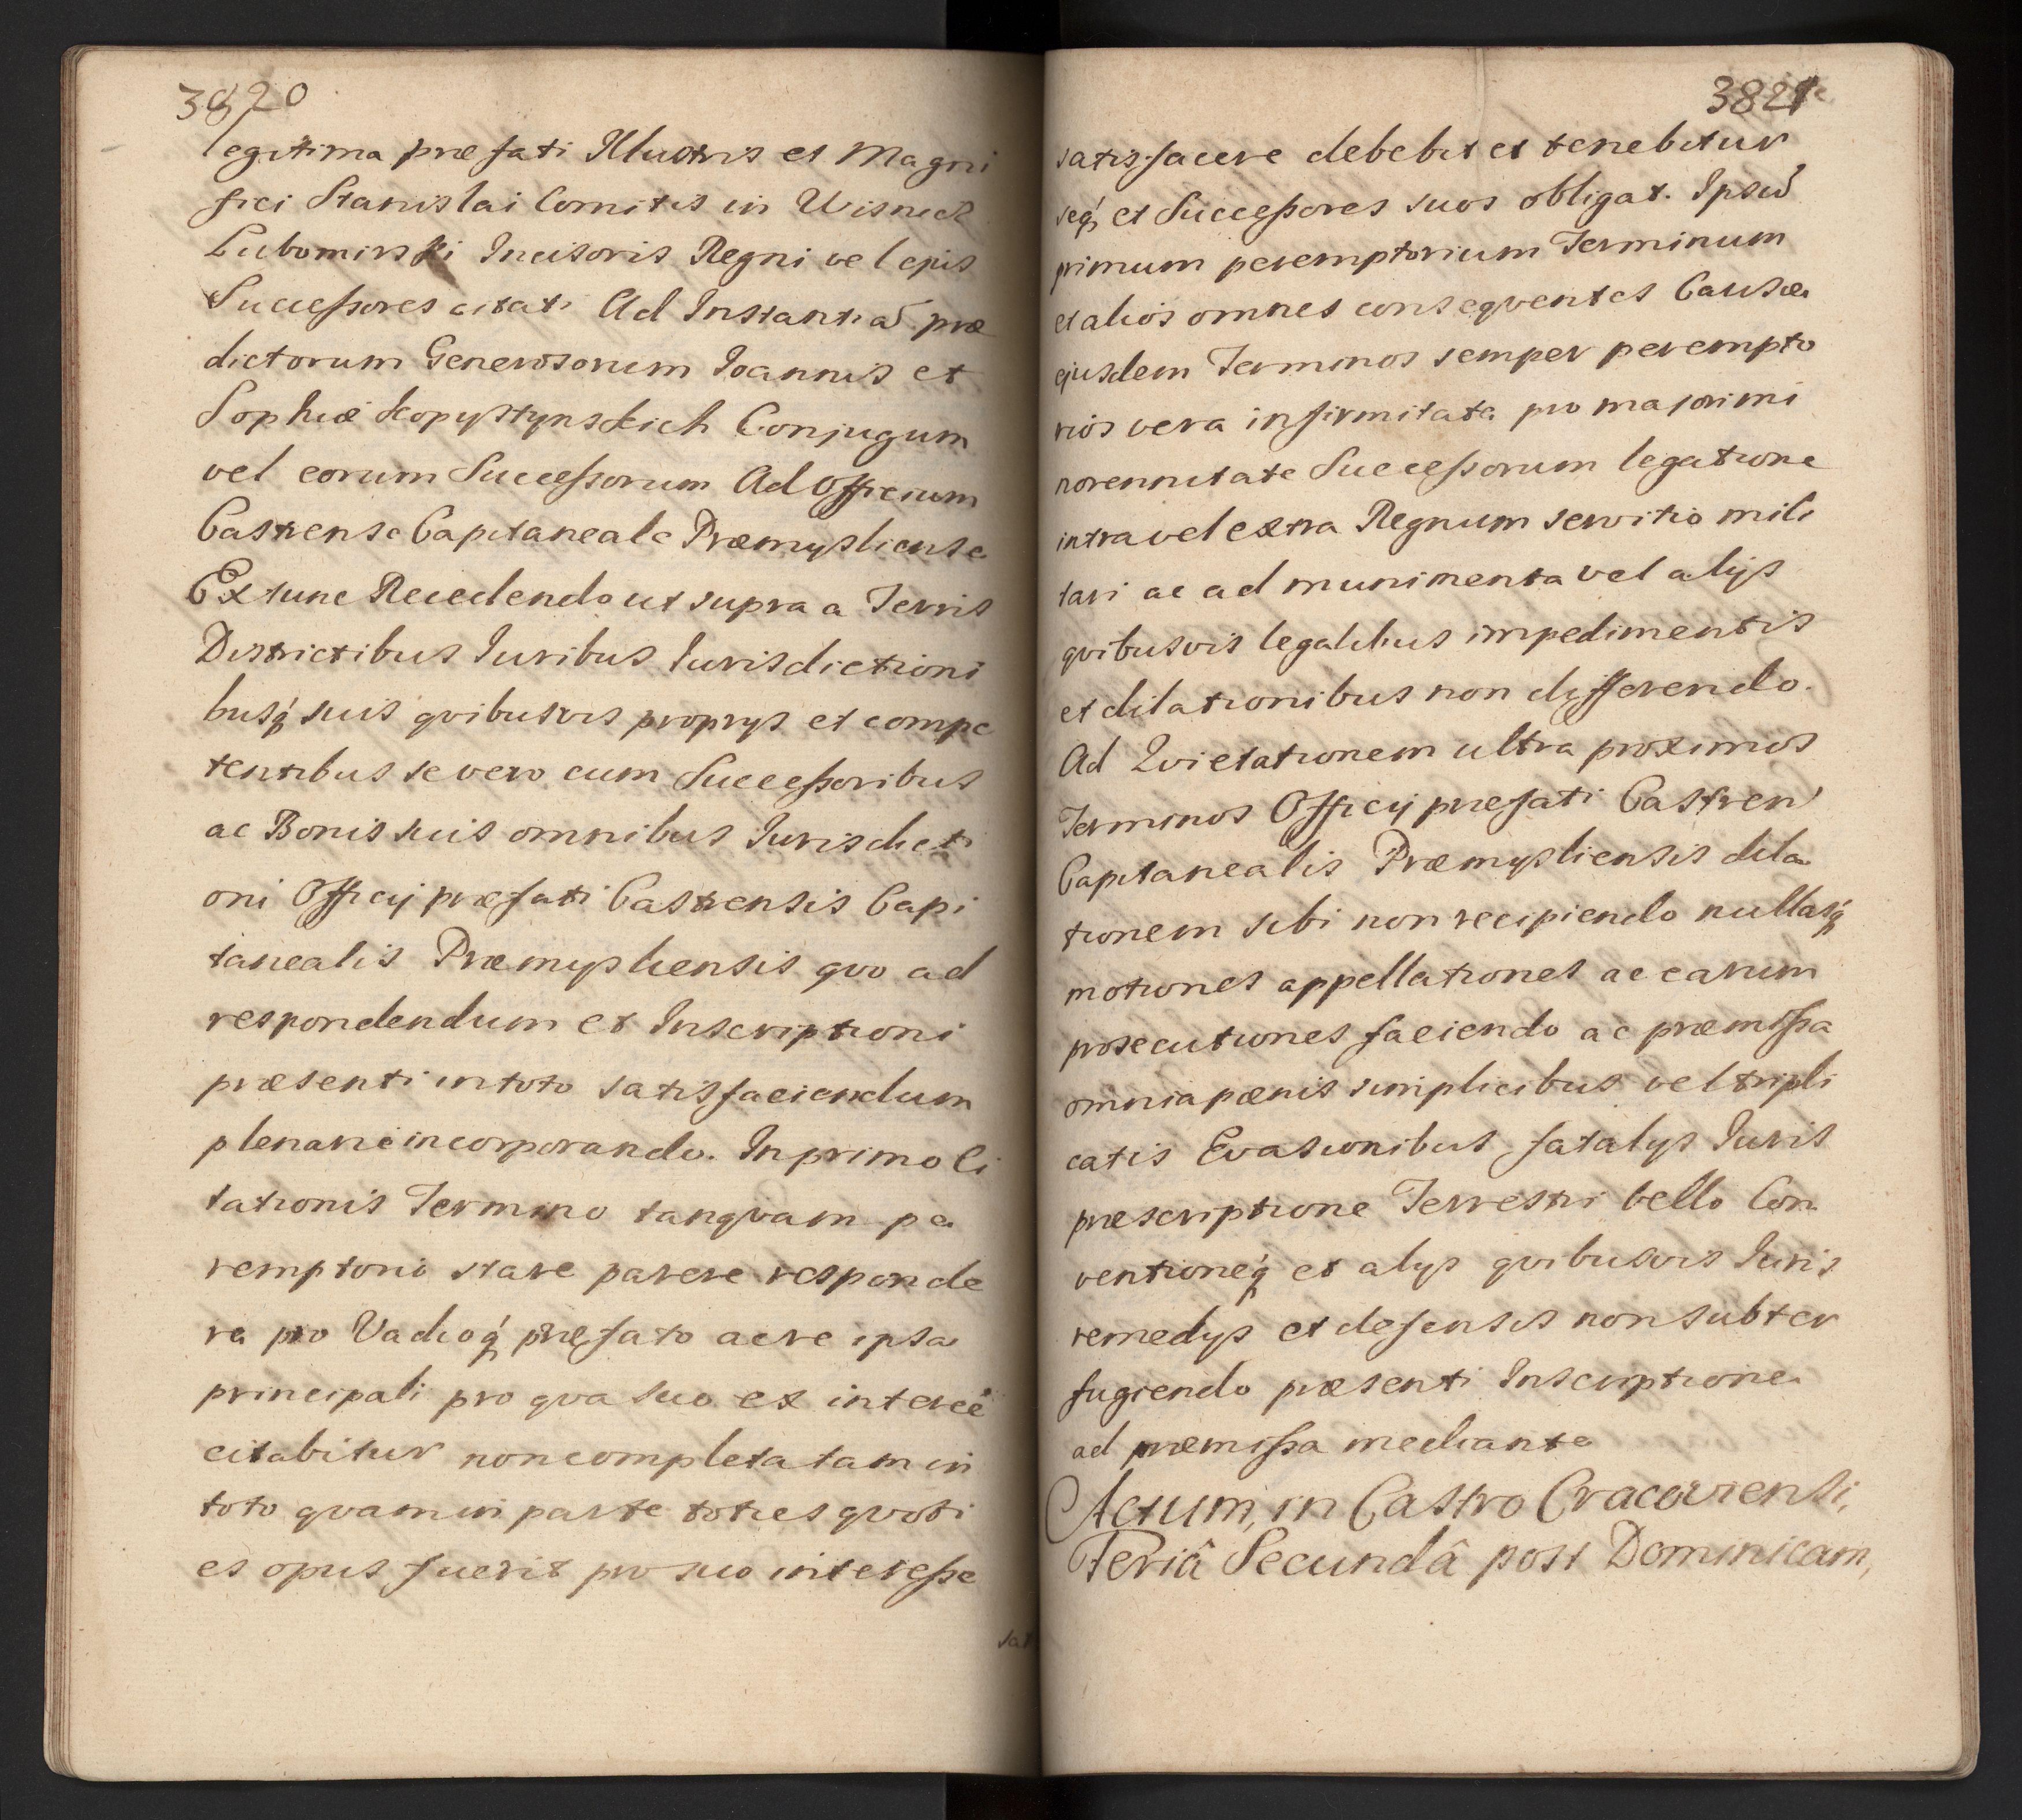 3820
legitima præfati Illustris et Magni
fici Stanislai Comitis in Wisnicz
Lubomirski Incisoris Regni vel ejus
Successores citati Ad Instantiã præ
dictorum Generosorum Joannis et
Sophiæ Kopystynskich Conjugum
vel eorum Successorum Ad Officium
Castrense Capitaneale Præmysliense
Ex tunc Recedendo ut supra a Terris
Districtibus Iuribus Iurisdictioni
busq́ suis qvibusvis proprys et compe
tentibus se vero cum Successoribus
ac Bonis suis omnibus Iurisdicti
oni Officij præfati Castrensis Capi
tanealis Præmysliensis qvo ad
respondendum et Inscriptioni
præsenti in toto satisfaciendum
plenarie incorporando. In primo Ci
tationis Termino tanqvam pe
remptorio stare parere responde
re pro Vadioq́ præfato ac re ipsa
principali pro qva suo ex intereẽ
citabitur non completa tam in
toto qvam in parte toties qvoti
es opus fuerit pro suo interesse
sat
3821
satisfacere debebit et tenebitur
seq́ et Successores suos obligat. Ipsũ
primum peremptorium Terminum
et alios omnes conseqventes Causæ
ejusdem Terminos semper perempto
rios vera infirmitate pro majori mi
norennitate Successorum legatione
intra vel extra Regnum servitio mili
tari ac ad munimenta vel alijs
qvibusvis legalibus impedimentis
et dilationibus non differendo.
Ad Qvietationem ultra proximos
Terminos Officij præfati Castren
Capitanealis Præmysliensis dila
tionem sibi non recipiendo nullasq́
motiones appellationes ac earum
prosecutiones faciendo ac præmissa
omnia pænis simplicibus vel tripli
catis Evasionibus fatalys Iuris
præscriptione Terrestri bello Con
ventioneq́ et alys qvibusvis Iuris
remedys et defensis non subter
fugiendo præsenti Inscriptione
ad præmissa mediante
Actum, in Castro Cracoviensi,
Feriâ Secundâ post Dominicam,